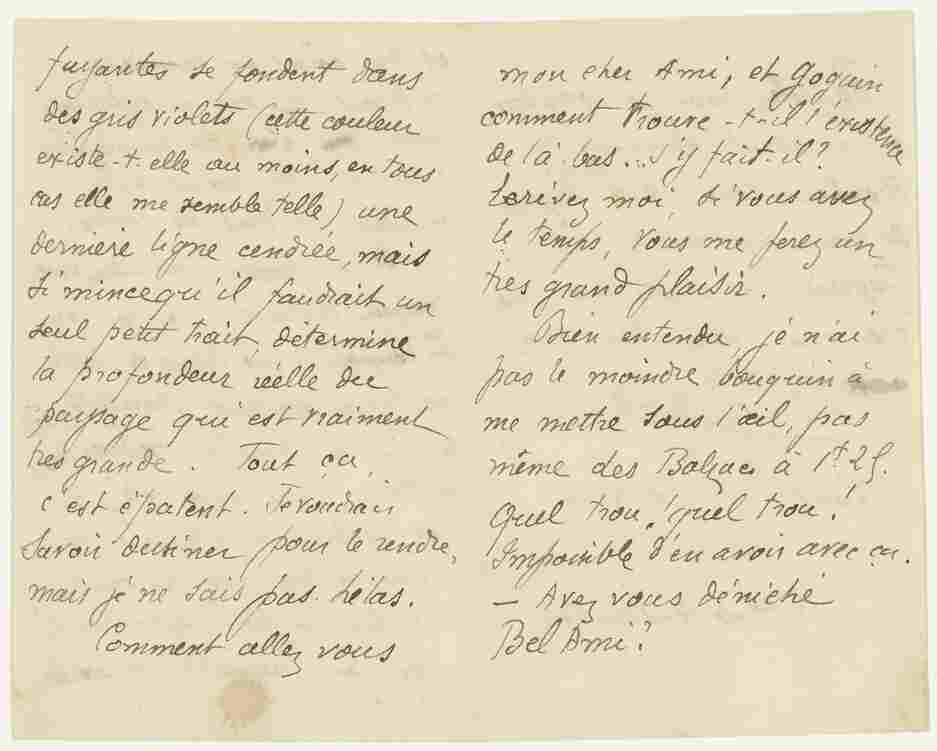 fuyantes se fondent dans
des gris violets (cette couleur
existe-t-elle au moins, en tous
cas elle me semble telle) une
derniere ligne cendrée, mais
si mince qu'il faudrait un
seul petit trait, détermine
la profondeur réelle du
paysage qui est vraiment
tres grande. Tout ça,
c'est épatent. Je voudrais
savoir dessiner pour le rendre,
mais je ne sais pas hélas.
Comment allez vous
mon cher Ami, et Goguin
comment trouve-t-il l'existence
de là bas... s'y fait-il?
Ecrivez moi, si vous avez
le temps, vous me ferez un
tres grand plaisir.
Bien entendu, je n'ai
pas le moindre bouquin à
me mettre sous l'œil, pas
même des Balzac à 1f 25.
Quel trou! quel trou!
Impossible d'en avoir avec ça.
— Avez vous déniché
Bel Ami?